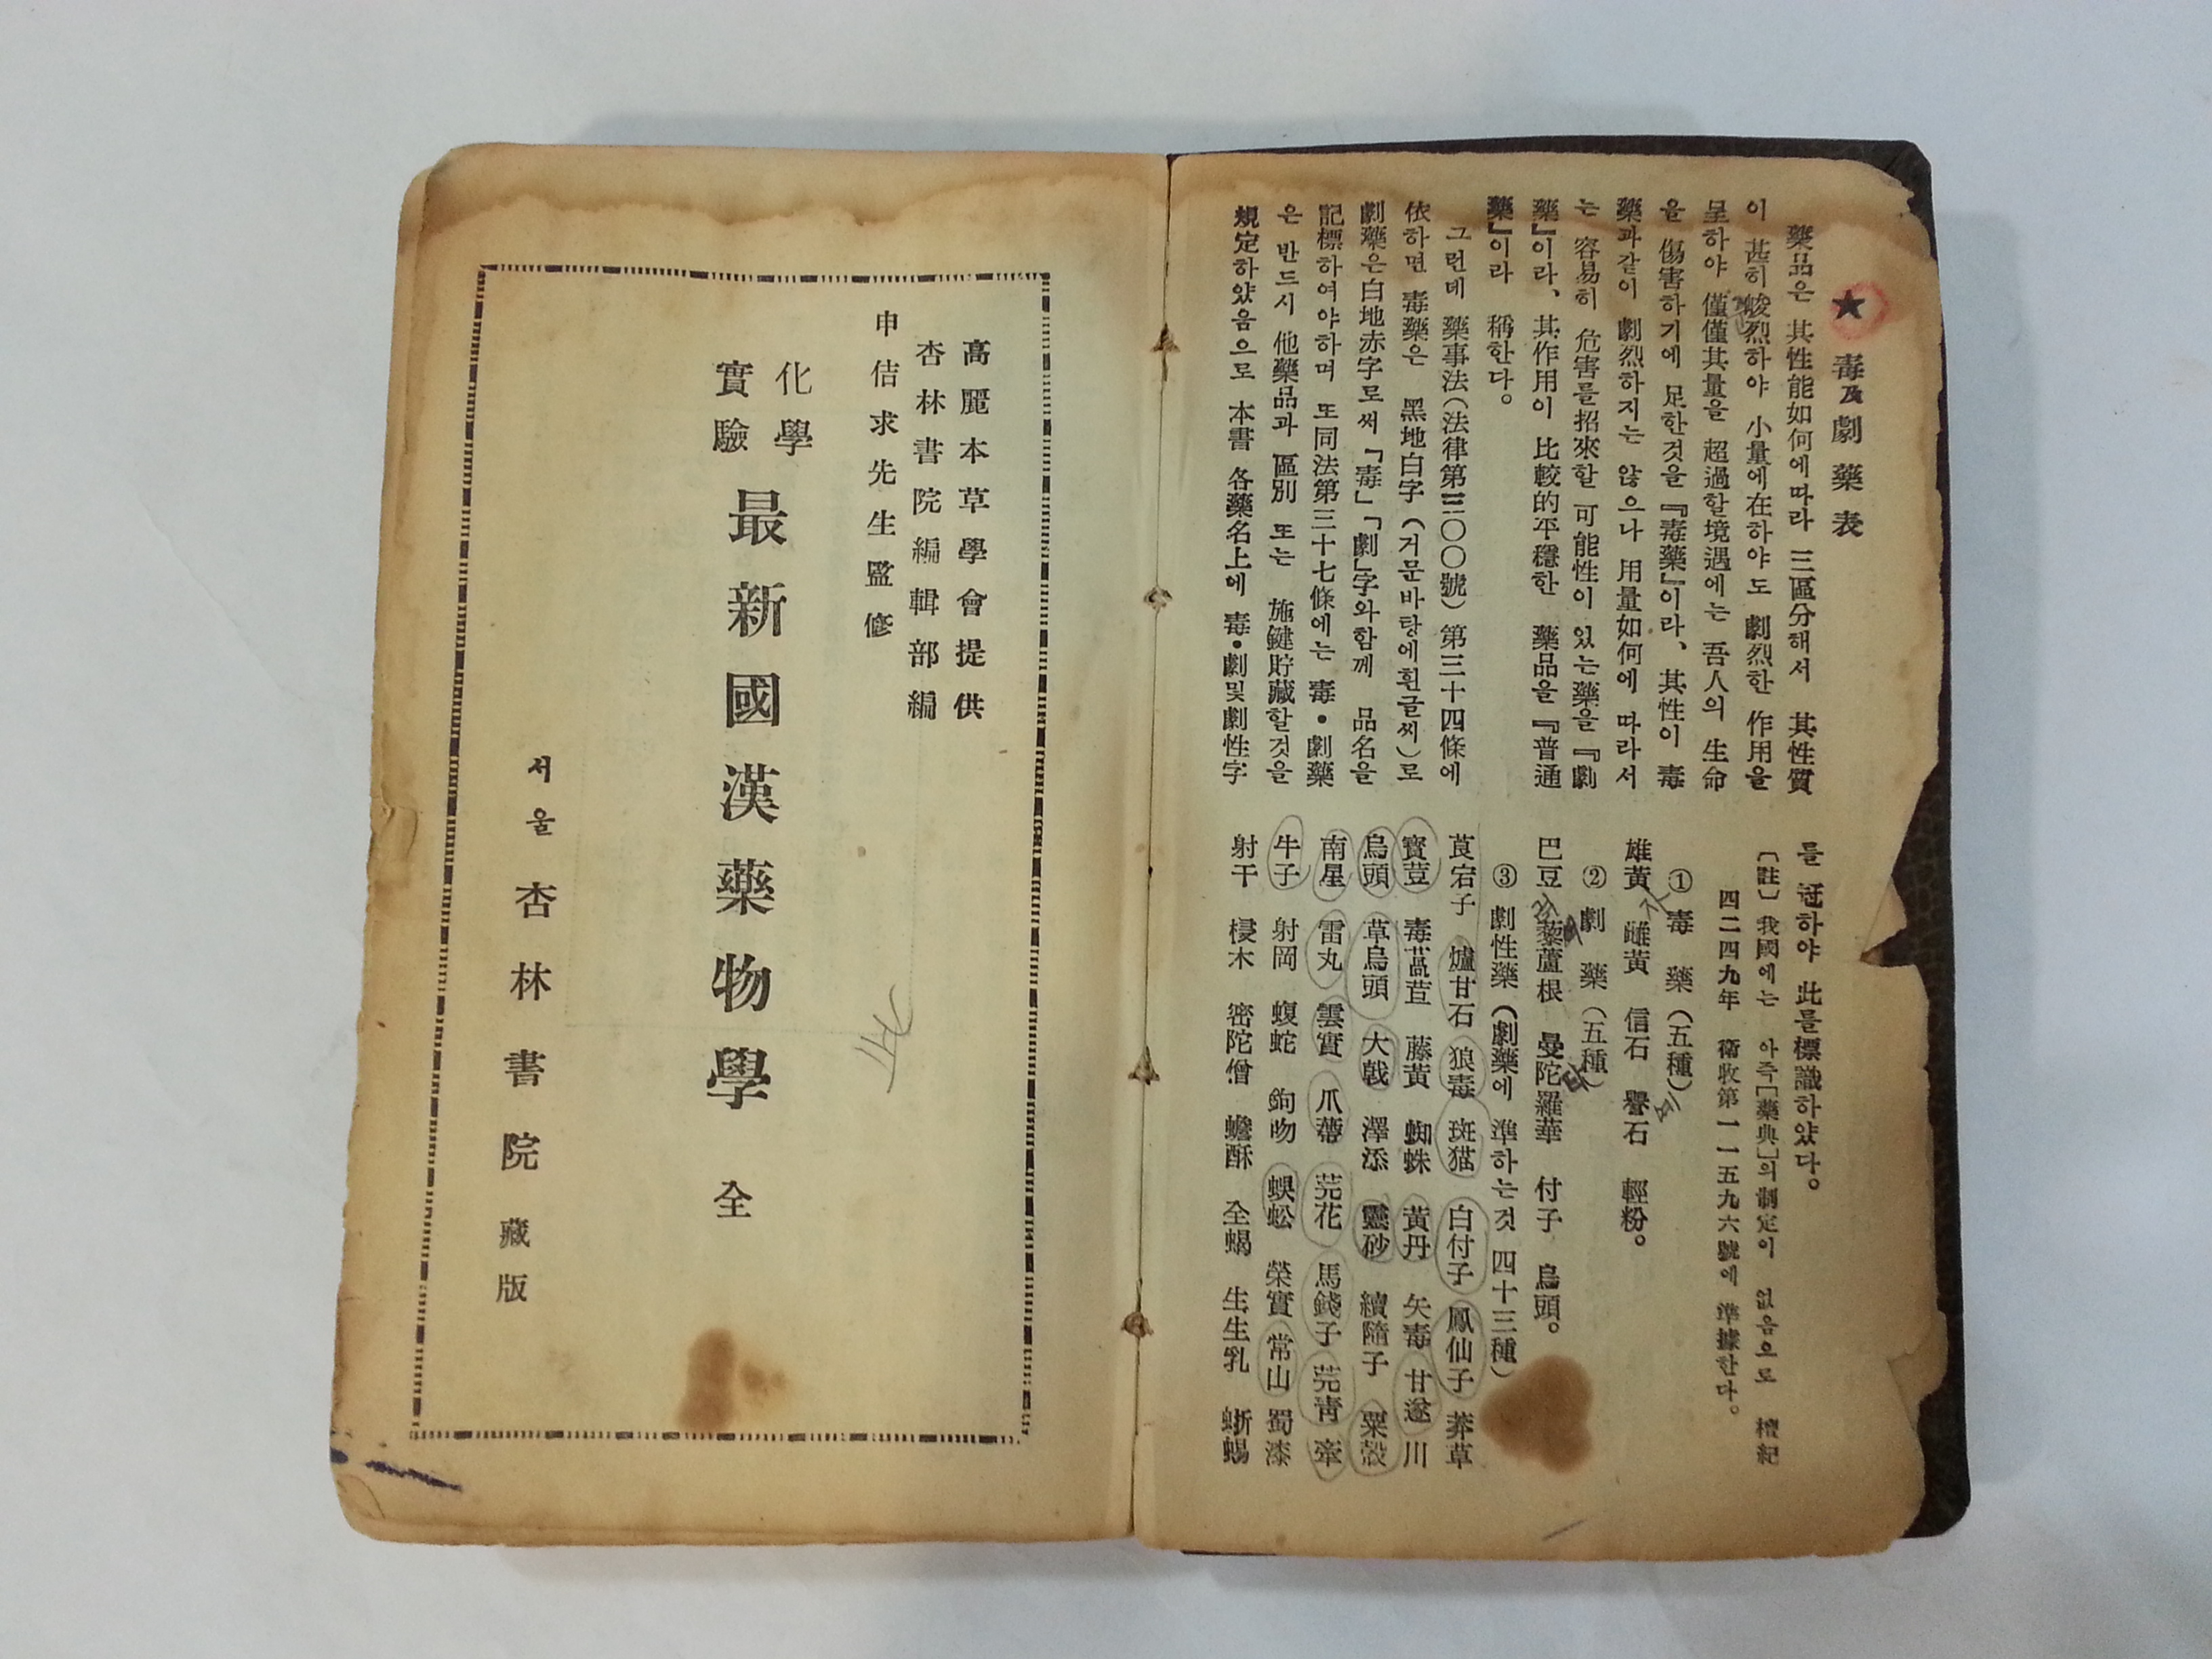 ★ 毒及劇藥表
藥品은 其性能如何에따라 三區分해서 其性質
이 甚히 峻烈하야 小量에在하야도 劇烈한 作用을
呈하야 僅僅其量을 超過할境遇에는 吾人의 生命
을 傷害하기에 足한것을『毒藥』이라、其性이 毒
藥과같이 劇烈하지는 않으나 用量如何에 따라서
는 容易히 危害를招來할 可能性이 있는藥을『劇
藥』이라、其作用이 比較的平穩한 藥品을『普通
藥』이라 稱한다。
그런데 藥事法(法律第三〇〇號)第三十四條에
依하면 毒藥은 黑地白字(거문바탕에흰글씨)로
劇藥은白地赤字로써「毒」「劇」字와함께 品名을
記標하여야하며 또同法第三十七條에는 毒・劇藥
은 반드시 他藥品과 區別 또는 施鍵貯藏할것을
規定하였음으로 本書 各藥名上에 毒・劇및劇性字
를 하야 此를標識하얐다。
〔註〕我國에는 아즉[藥典]의制定이 없음으로 檀紀
四二四九年 衛收第一一五九六號에 準據한다。
①毒 藥(五種)
雄黃 雌黃 信石 礜石 輕粉。
②劇 藥(五種)
巴豆 藜蘆根 曼陀羅華 付子 烏頭。
③劇性藥(劇藥에 準하는것 四十三種)
莨宕子 爐甘石 狼毒 斑猫 白付子 鳳仙子 莽草
毒 藤黃 蜘蛛 黃丹 矢毒 甘遂 川
烏頭 草烏頭 大戟 澤漆 靈砂 續隨子 粟殼
南星 雷丸 雲實 爪蔕 芫花 馬錢子 芫靑 牽
牛子 射岡 蝮蛇 鉤吻 蜈蚣 榮實 常山 蜀漆
射干 椶木 密陀僧 蟾酥 全蝎 生生乳 蜥蜴
高麗本草學會提供
杏林書院編輯部編
申佶求先生監修
化學
實驗
最新國漢藥物學 全
서울 杏林書院 藏版